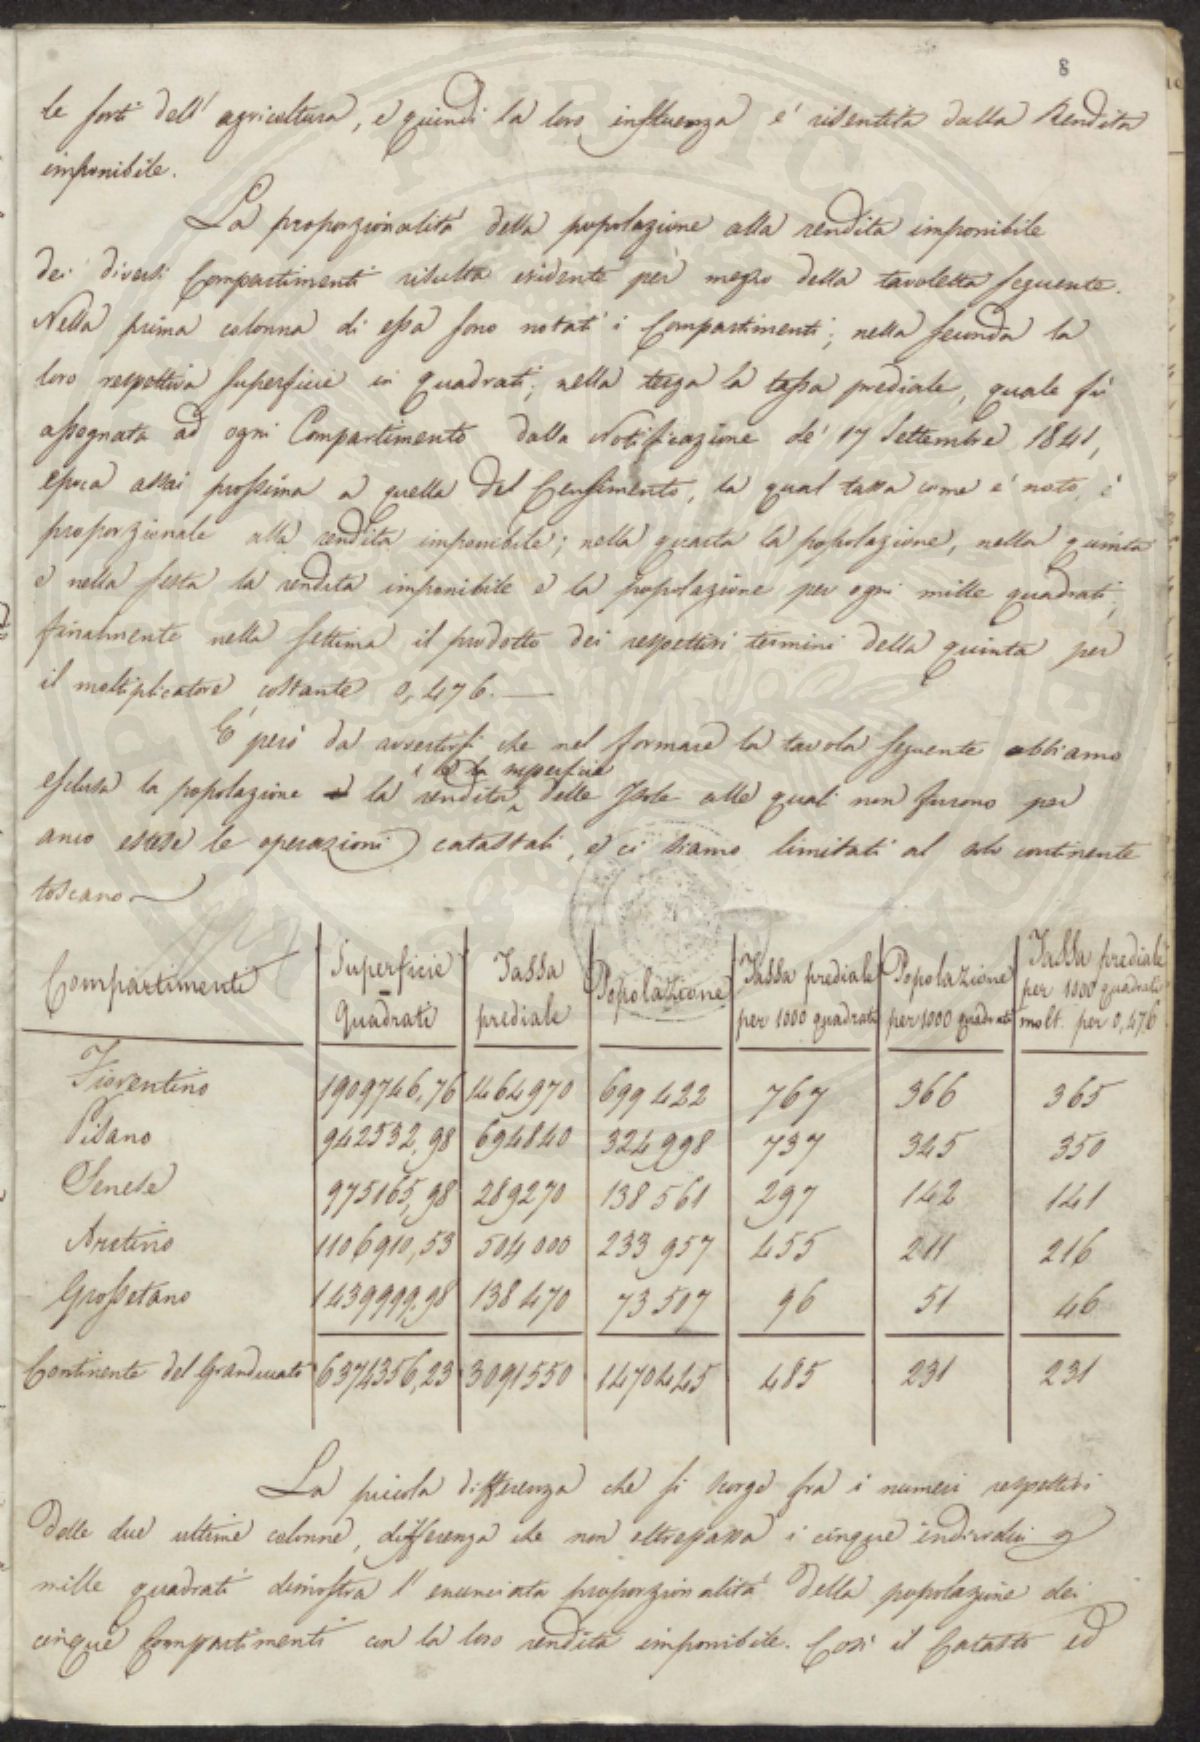 8
le sorti dell' agricoltura, e quindi la loro influenza è risentita dalla Rendita
imponibile.
La proporzionalità della popolazione alla rendita imponibile
dei diversi Compartimenti risulta evidente per mezzo della tavoletta seguente.
Nella prima colonna di essa sono notati i Compartimenti; nella seconda la
loro respettiva superficie in quadrati; nella terza la tassa prediale, quale fù
assegnata ad ogni Compartimento dalla Notificazione de' 17 Settembre 1841,
epoca assai prossima a quella del Censimento, la qual tassa come è noto, è
proporzionale alla rendita imponibile; nella quarta la popolazione, nella quinta
e nella sesta la rendita imponibile e la popolazione per ogni mille quadrati,
finalmente nella settima il prodotto dei respettivi termini della quinta per
il moltiplicatore costante 0,476.
E' però da avvertirsi che nel formare la tavola seguente abbiamo
esclusa la popolazione la rendita e la superficie delle Isole alle quali non furono per
anco estese le operazioni catastali, e ci siamo limitati al solo continente
toscano
Compartimenti | Superficie Quadrati | Tassa prediale | Popolazione | Tassa prediale per 1000 quadrati | Popolazione per 1000 quadrati | Tassa prediale per 1000 quadrati molt. per 0,476
Fiorentino 1909746,76 1464970 699422 767 366 365
Pisano 942532,98 694840 324998 737 345 350
Senese 975165,98 289270 138561 297 142 141
Aretino 1106910,53 504000 233957 455 211 216
Grossetano 1439999,98 138470 73507 96 51 46
Continente del Granducato 6374356,23 3091550 1470445 485 231 231
La piccola differenza che si scorge fra i numeri respettivi
delle due ultime colonne, differenza che non oltrepassa i cinque individui
mille quadrati dimostra l' enunciata proporzionalità della popolazione dei
cinque Compartimenti con la loro rendita imponibile. Così il Catasto ed